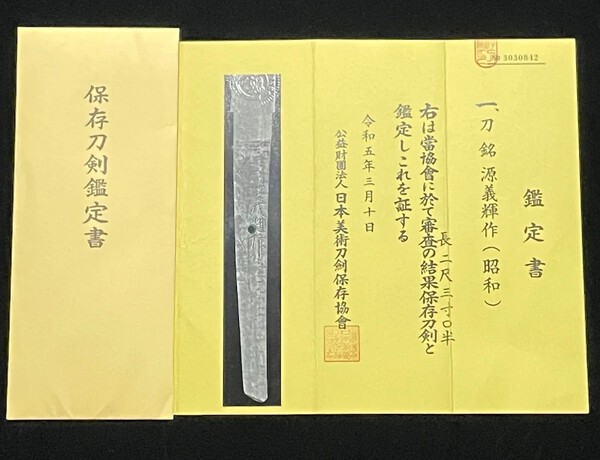 保存刀剣鑑定書
№ 3030842
鑑定書
一、刀 銘 源義輝作(昭和)
長二尺三寸〇半
右は當協會に於て審査の結果保存刀剣と
鑑定しこれを証する
令和五年三月十日
公益財團法人日本美術刀劍保存協會